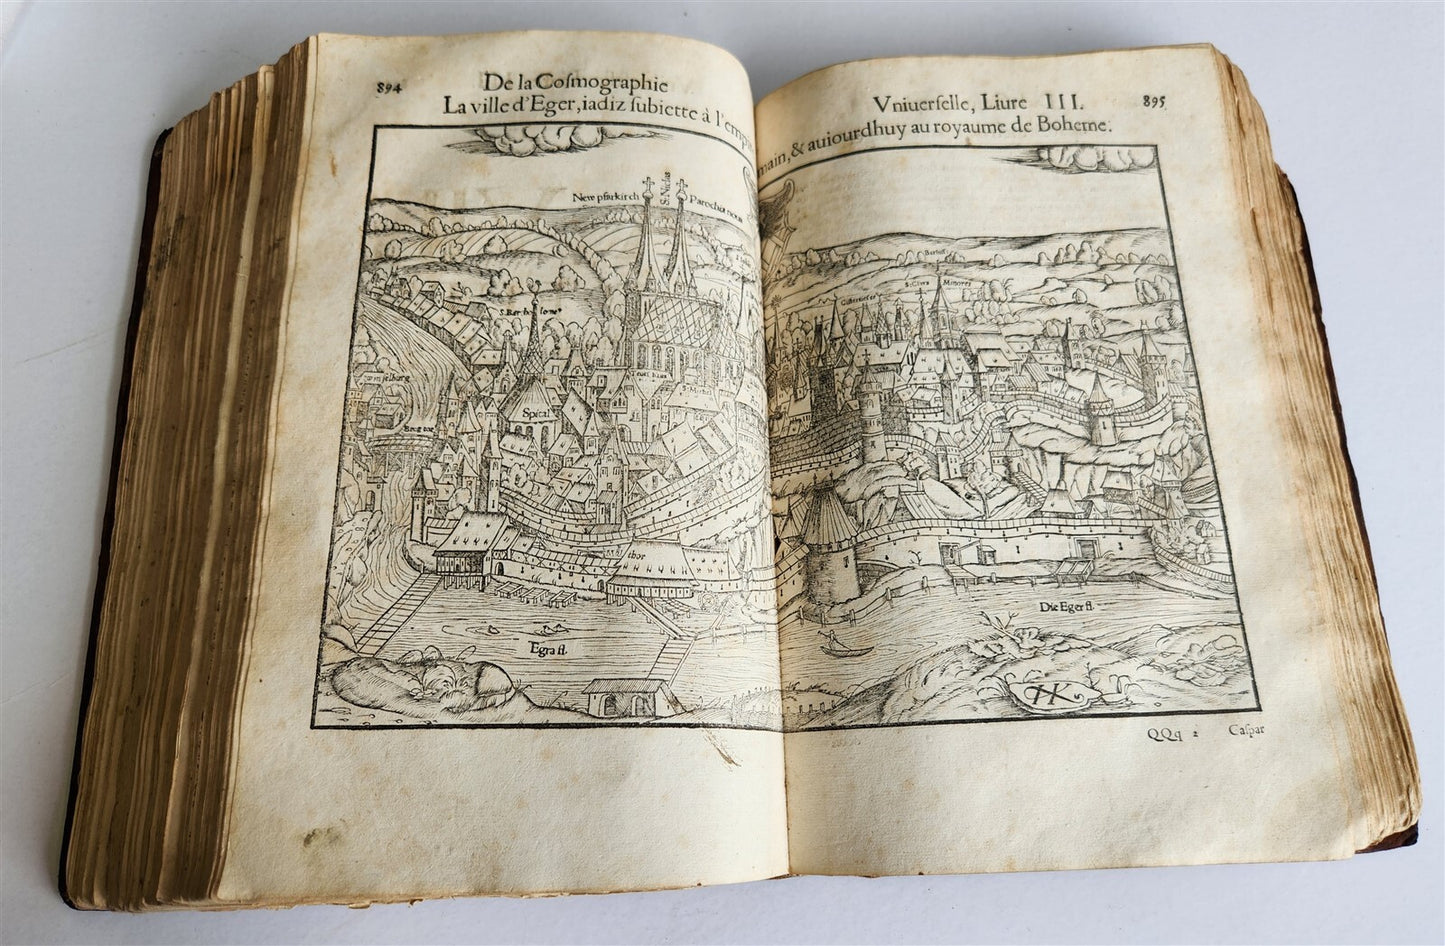 894
De la Coſmographie
La ville d'Eger, iadiz ſubiette à l'empi
New pfarkirch
S. Niclas
Parochia noua
S. Bartholome⁹
Spital
Bregtor
thor
Egra fl.
Vniuerſelle, Liure III.
895
main, & auiourdhuy au royaume de Boheme.
S. Clara
Minores
Die Eger fl.
HK
QQq 2
Caſpar